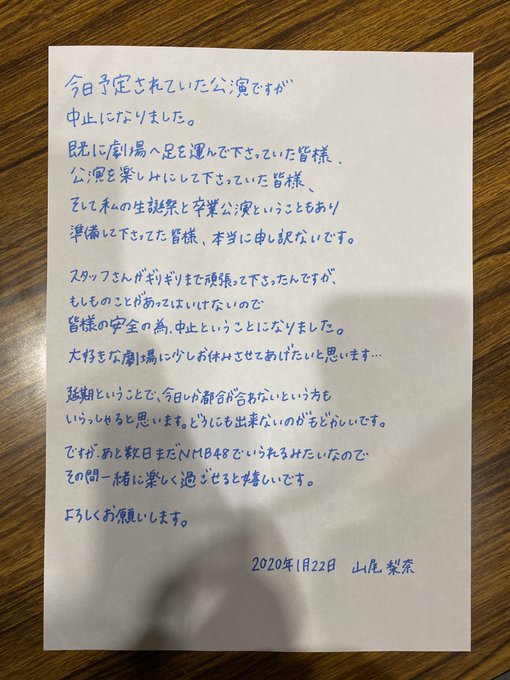 今日予定されていた公演ですが
中止になりました。
既に劇場へ足を運んで下さっていた皆様、
公演を楽しみにして下さっていた皆様、
そして私の生誕祭と卒業公演ということもあり
準備して下さってた皆様、本当に申し訳ないです。
スタッフさんがギリギリまで頑張って下さったんですが、
もしものことがあってはいけないので
皆様の安全の為、中止ということになりました。
大好きな劇場に少しお休みさせてあげたいと思います…
延期ということで、今日しか都合が合わないという方も
いらっしゃると思います。どうにも出来ないのがもどかしいです。
ですが、あと数日まだNMB48でいられるみたいなので
その間一緒に楽しく過ごせると嬉しいです。
よろしくお願いします。
2020年1月22日 山尾梨奈